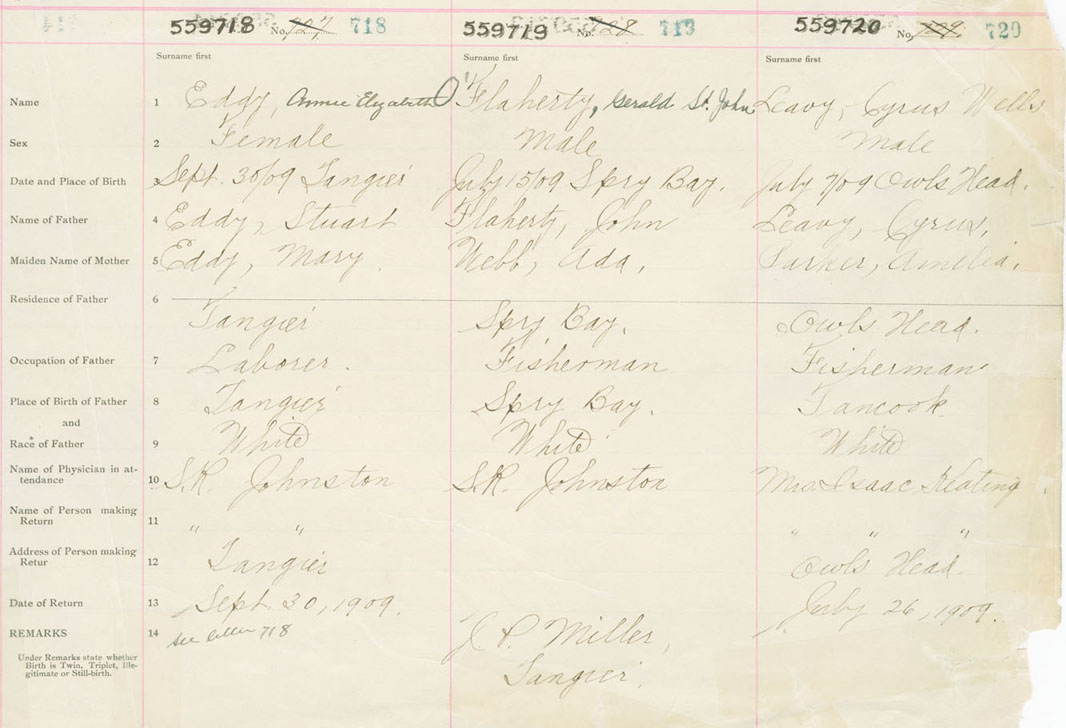 559718 No. 727 718 559719 No. 728 713 559720 No. 729 720
Surname first Surname first Surname first
Name 1 Eddy, Annie Elizabeth O'Flaherty, Gerald St. John Leavy, Cyrus Wells
Sex 2 Female Male Male
Date and Place of Birth 3 Sept. 30/09 Tangier July 15/09 Spry Bay. July 7/09 Owls Head.
Name of Father 4 Eddy, Stuart Flaherty, John Leavy, Cyrus,
Maiden Name of Mother 5 Eddy, Mary. Webb, Ada, Parker, Amelia,
Residence of Father 6
Tangier Spry Bay. Owls Head.
Occupation of Father 7 Laborer. Fisherman Fisherman
Place of Birth of Father 8 Tangier Spry Bay. Tancook
and
Race of Father 9 White White White
Name of Physician in at-
tendance 10 S.R. Johnston S.R. Johnston Mrs Isaac Keating
Name of Person making
Return 11 " " " " "
Address of Person making
Retur 12 Tangier Owls Head.
Date of Return 13 Sept. 30, 1909. July 26, 1909.
REMARKS 14 see letter 718 J P. Miller,
Under Remarks state whether
Birth is Twin, Triplet, Ille-
gitimate or Still-birth.
Tangier.